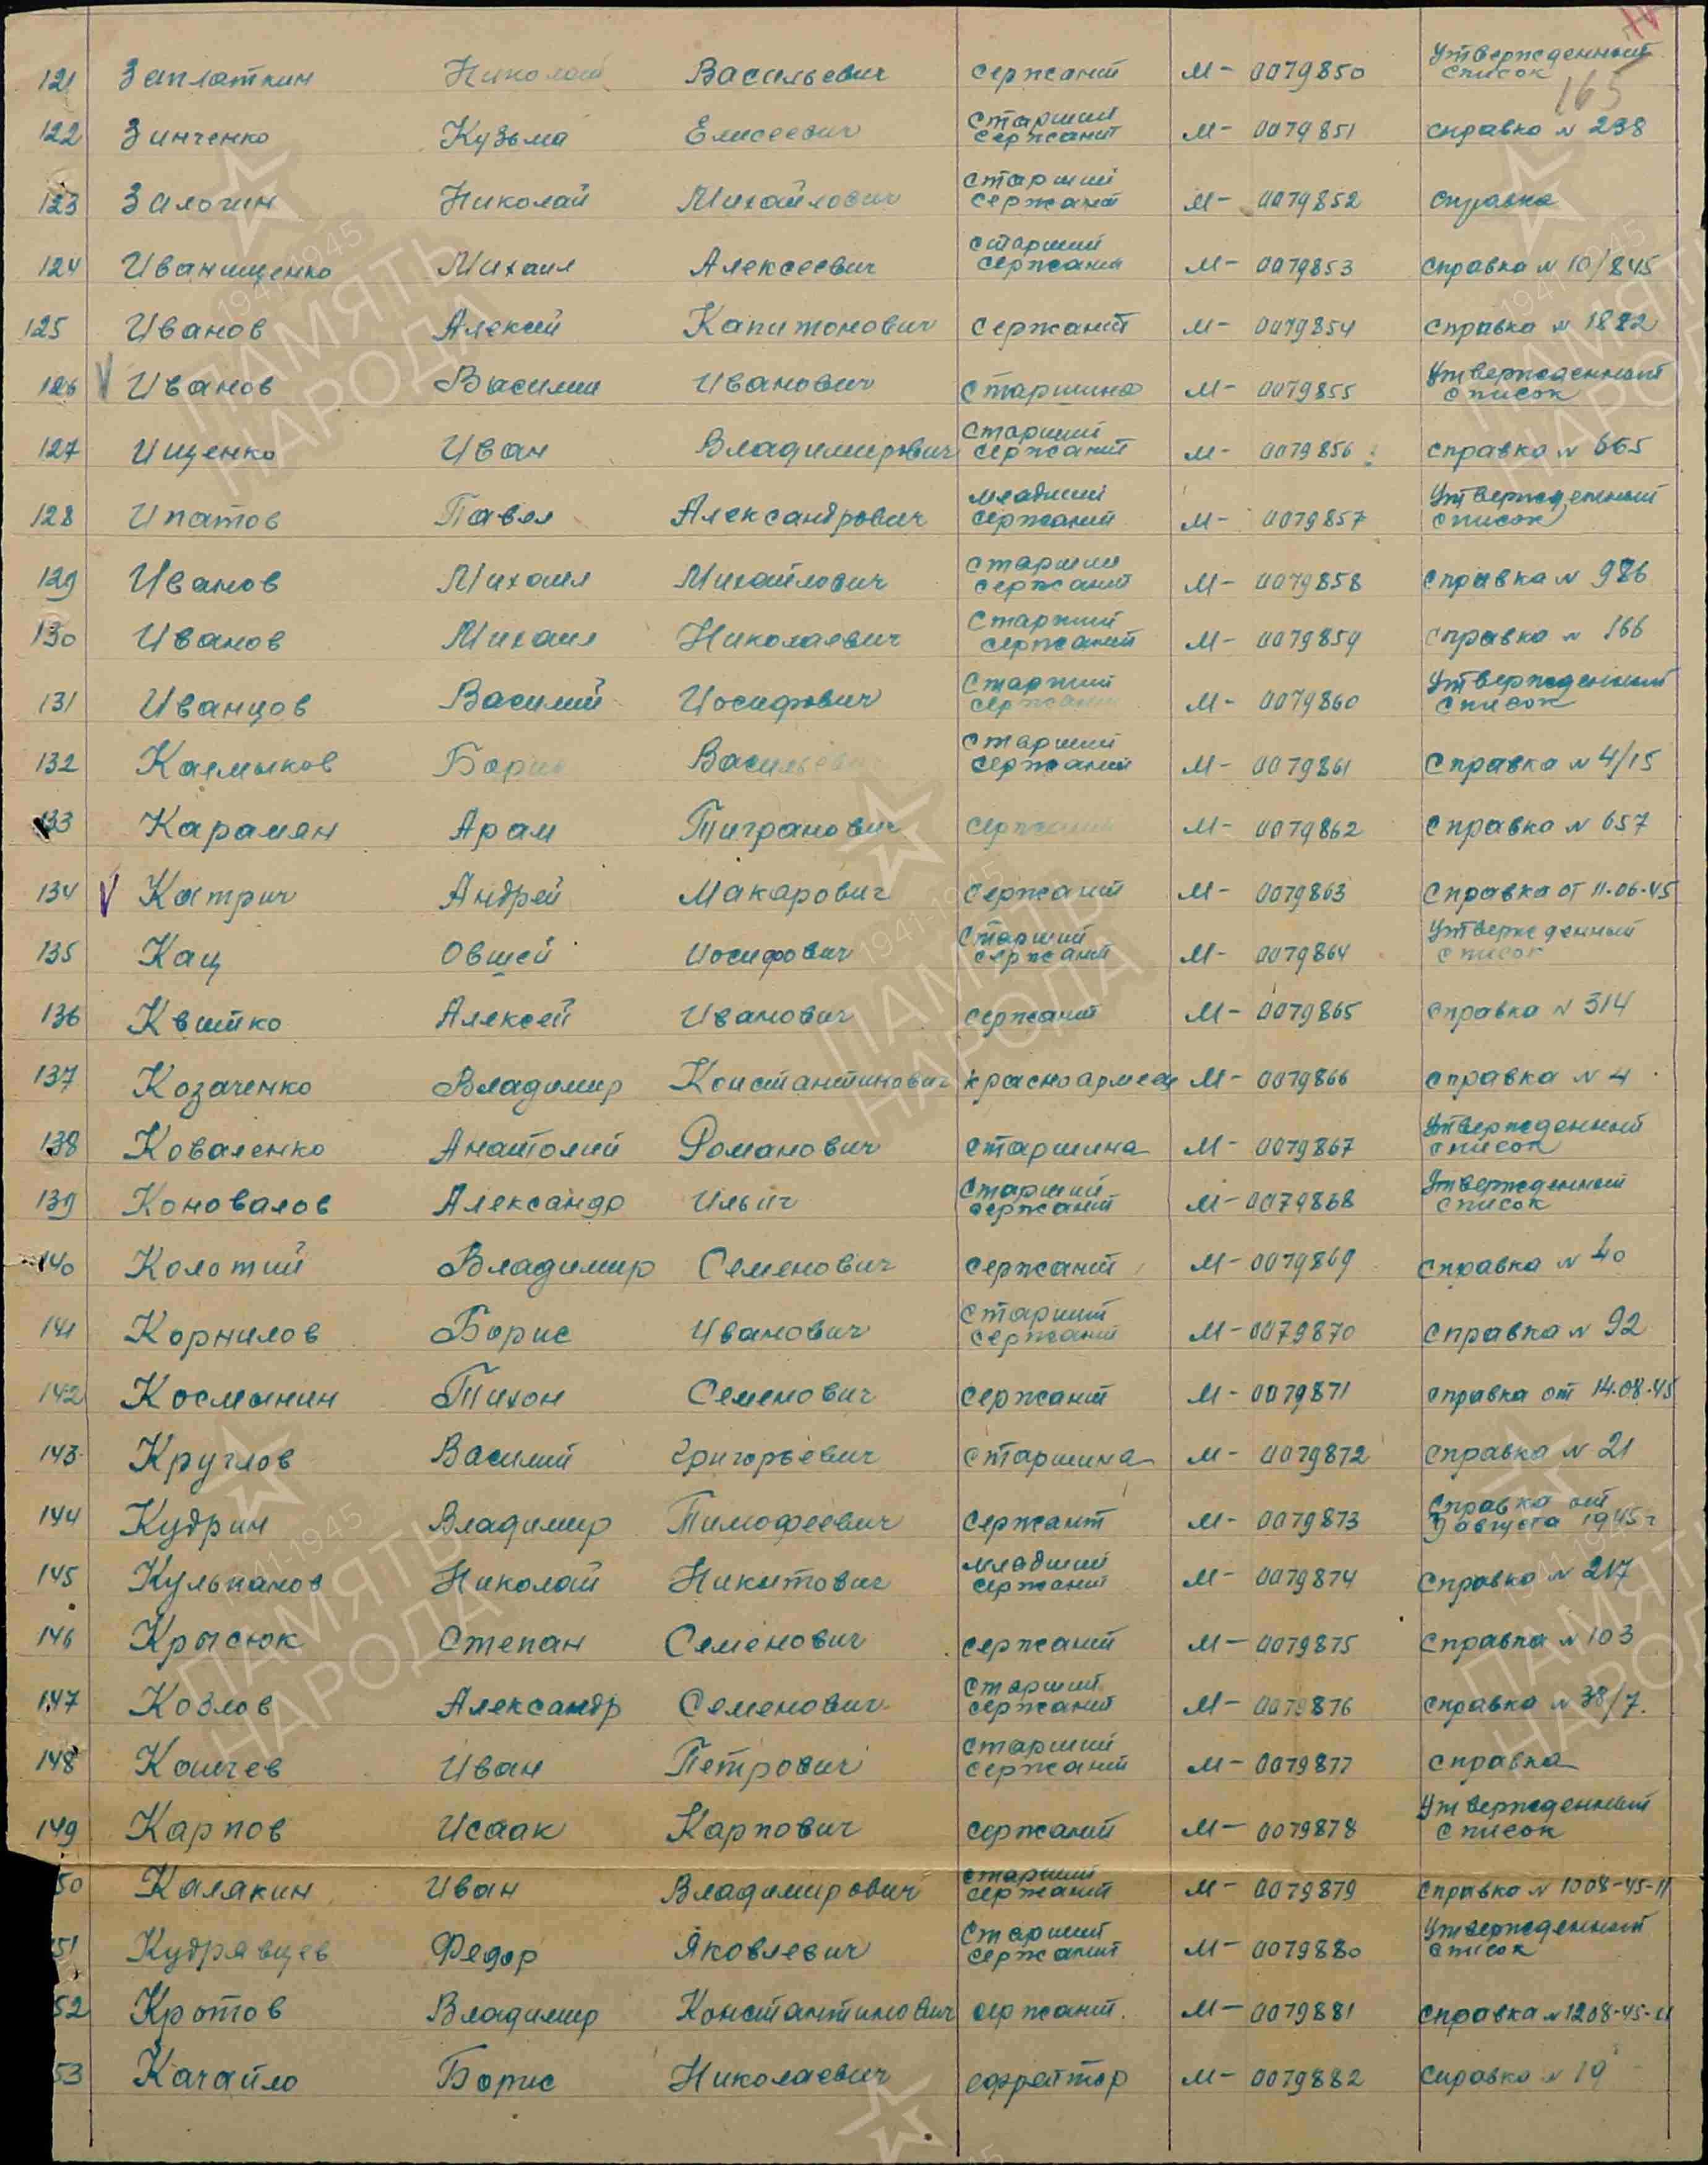 165
121 Заплаткин Николай Васильевич сержант М- 0079850 Утвержденный список
122 Зинченко Кузьма Елисеевич Старший сержант М- 0079851 справка № 238
123 Залогин Николай Михайлович Старший сержант М- 0079852 справка
124 Иванищенко Михаил Алексеевич Старший сержант М- 0079853 справка № 10/845
125 Иванов Алексей Капитонович сержант М- 0079854 справка № 1882
126 Иванов Василий Иванович старшина М- 0079855 Утвержденный список
127 Ищенко Иван Владимирович Старший сержант М- 0079856 справка № 665
128 Ипатов Павел Александрович младший сержант М- 0079857 Утвержденный список
129 Иванов Михаил Михайлович старший сержант М- 0079858 справка № 986
130 Иванов Михаил Николаевич Старший сержант М- 0079859 справка № 166
131 Иванцов Василий Иосифович Старший сержант М- 0079860 Утвержденный список
132 Калмыков Борис Васильевич Старший сержант М- 0079861 Справка № 4/15
133 Карамян Арам Тигранович сержант М- 0079862 справка № 657
134 Катрич Андрей Макарович сержант М- 0079863 Справка от 11.06.45
135 Кац Овшей Иосифович Старший сержант М- 0079864 Утвержденный список
136 Квитко Алексей Иванович сержант М- 0079865 справка № 314
137 Козаченко Владимир Константинович красноармеец М- 0079866 справка № 4
138 Коваленко Анатолий Романович старшина М- 0079867 Утвержденный список
139 Коновалов Александр Ильич Старший сержант М- 0079868 Утвержденный список
140 Колотий Владимир Семенович сержант М- 0079869 справка № 40
141 Корнилов Борис Иванович Старший сержант М- 0079870 справка № 92
142 Космынин Тихон Семенович сержант М- 0079871 справка от 14.08.45
143 Круглов Василий Григорьевич старшина М- 0079872 справка № 21
144 Кудрин Владимир Тимофеевич сержант М- 0079873 Справка от 9 августа 1945 г
145 Кульпанов Николай Никитович младший сержант М- 0079874 справка № 217
146 Крысюк Степан Семенович сержант М- 0079875 справка № 103
147 Козлов Александр Семенович Старший сержант М- 0079876 справка № 38/7.
148 Иван Петрович старший сержант М- 0079877 справка
149 Карпов Исаак Карпович сержант М- 0079878 Утвержденный список
50 Калякин Иван Владимирович старший сержант М- 0079879 справка № 1008-45-11
51 Кудрявцев Федор Яковлевич Старший сержант М- 0079880 Утвержденный список
52 Кротов Владимир Константинович сержант. М- 0079881 справка № 1208-45-11
53 Качайло Борис Николаевич ефрейтор М- 0079882 справка № 19
1941-1945
ПАМЯТЬ
НАРОДА